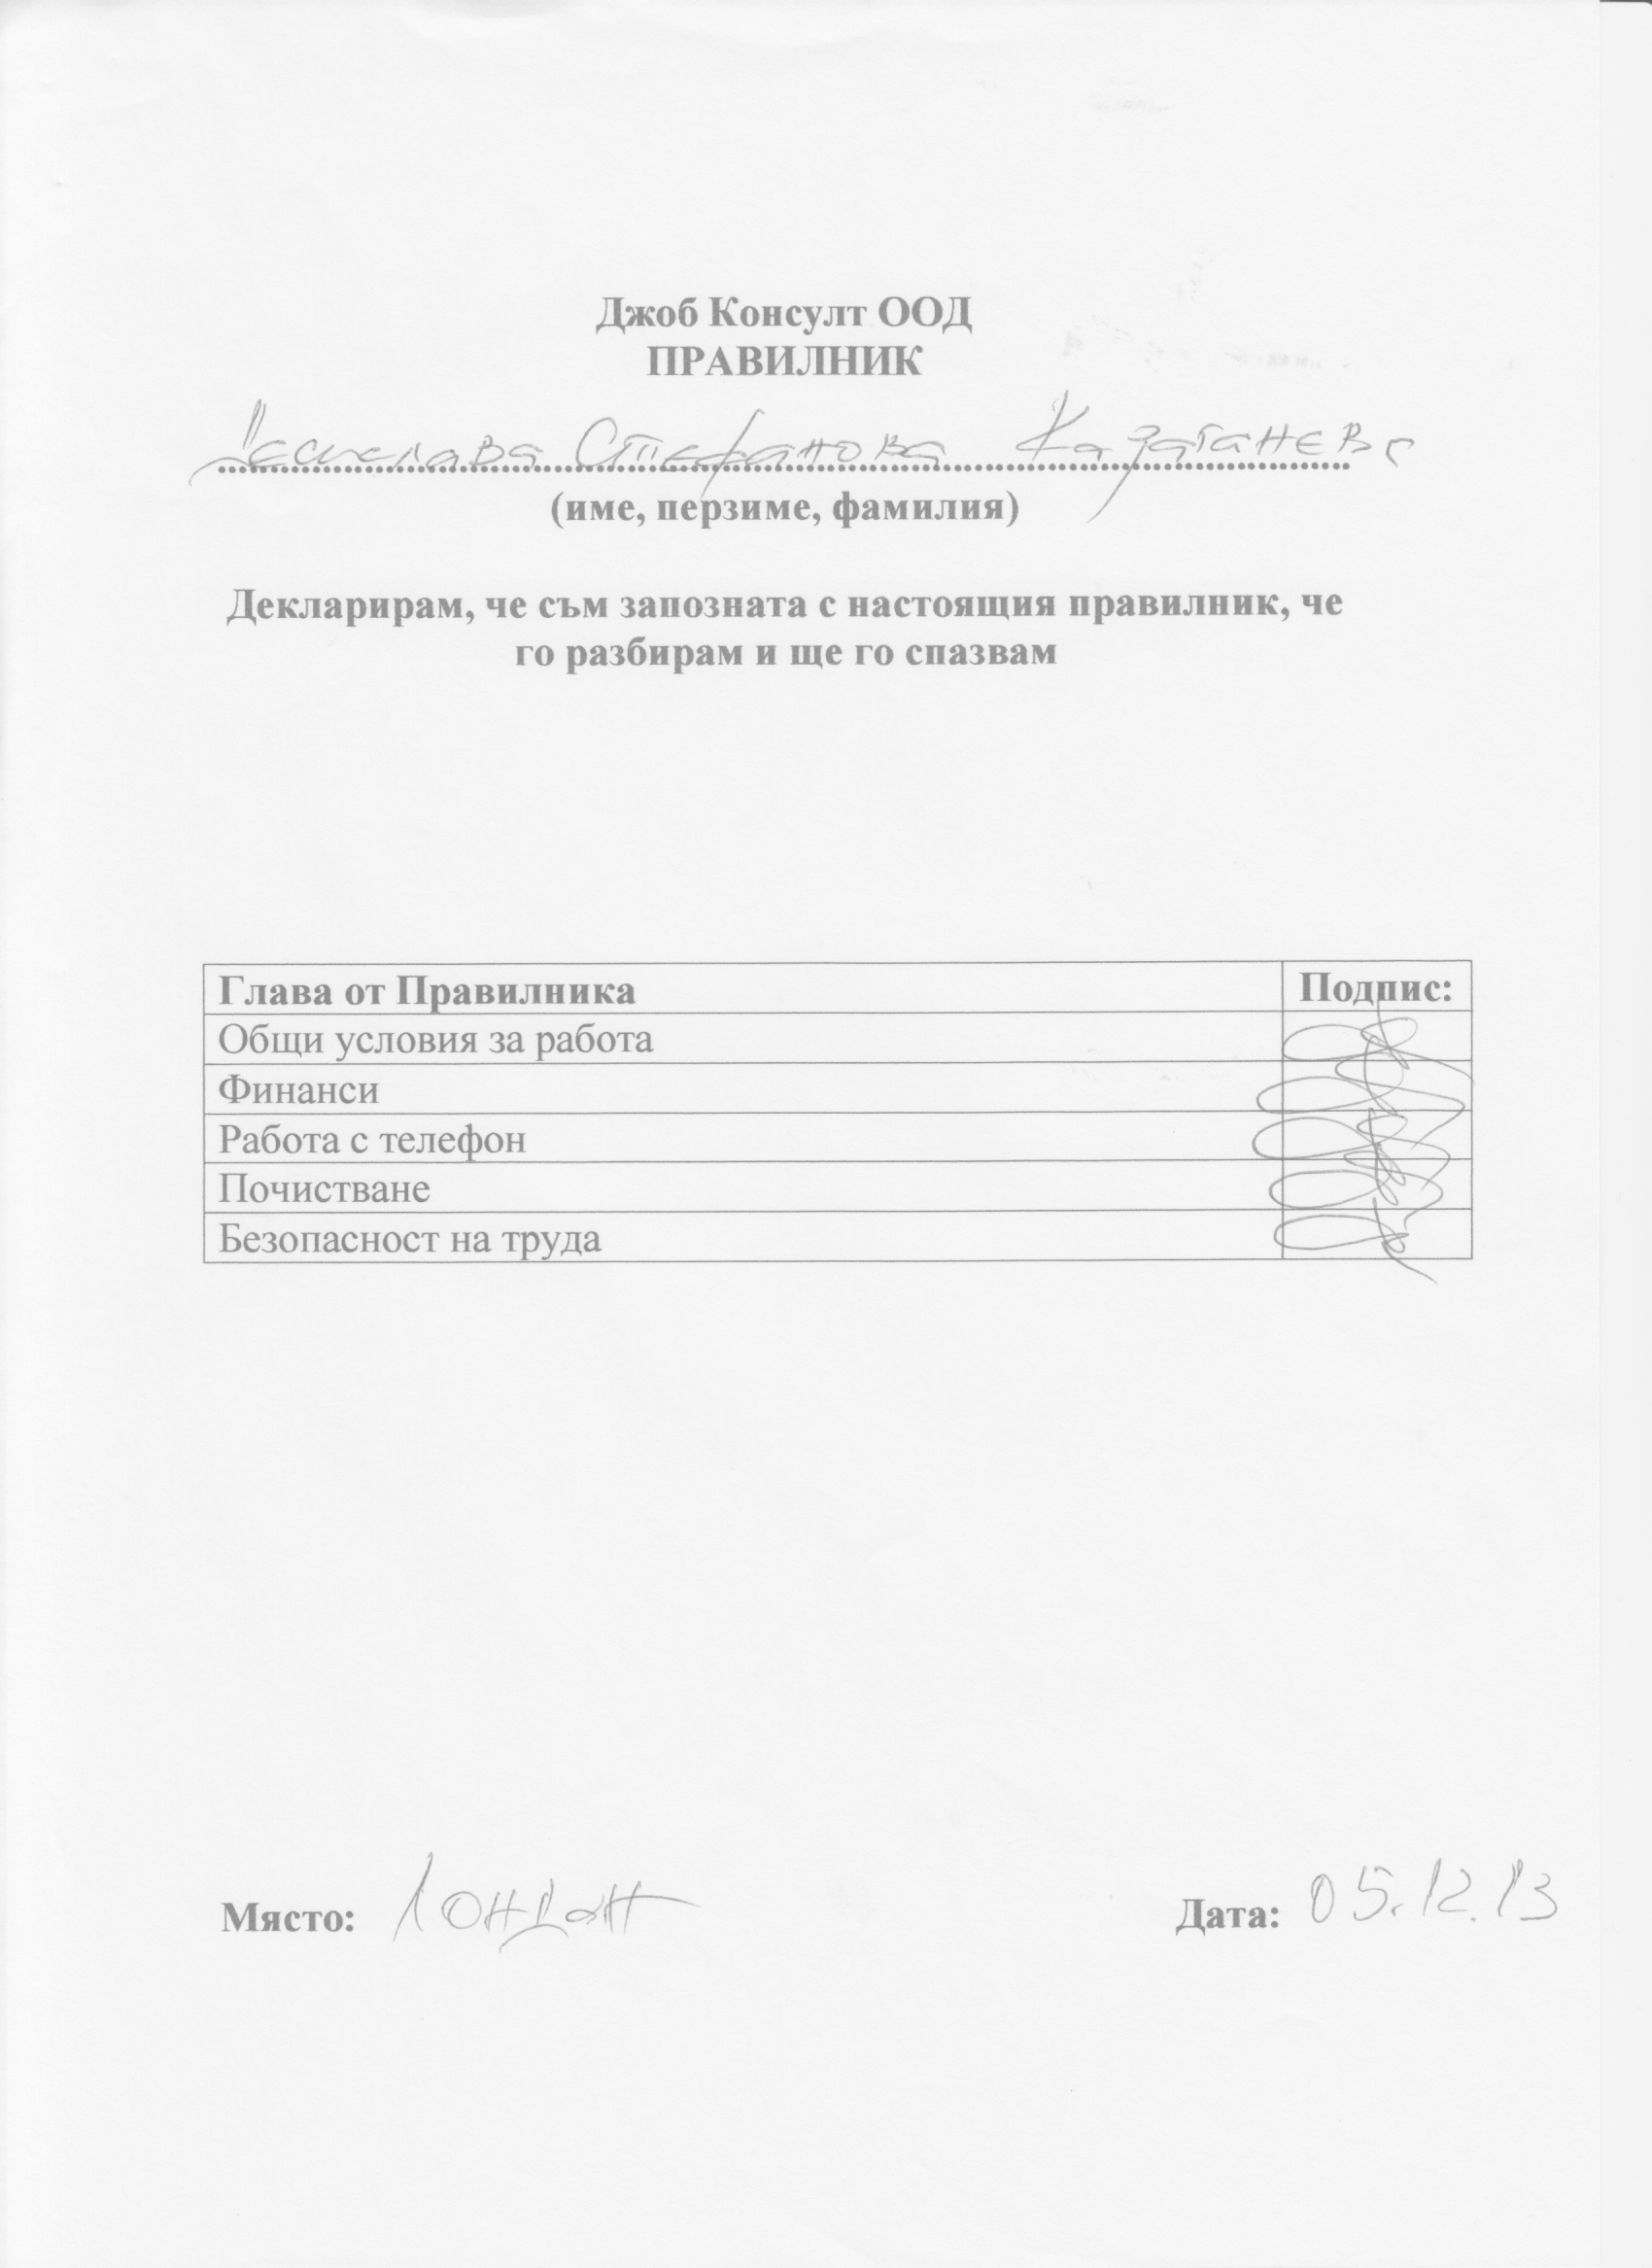 Джоб Консулт ООД
ПРАВИЛНИК
Десислава Стефанова
(име, перзиме, фамилия)
Декларирам, че съм запозната с настоящия правилник, че
го разбирам и ще го спазвам
Глава от Правилника Подпис:
Общи условия за работа
Финанси
Работа с телефон
Почистване
Безопасност на труда
Място: Лондон Дата: 05.12.13